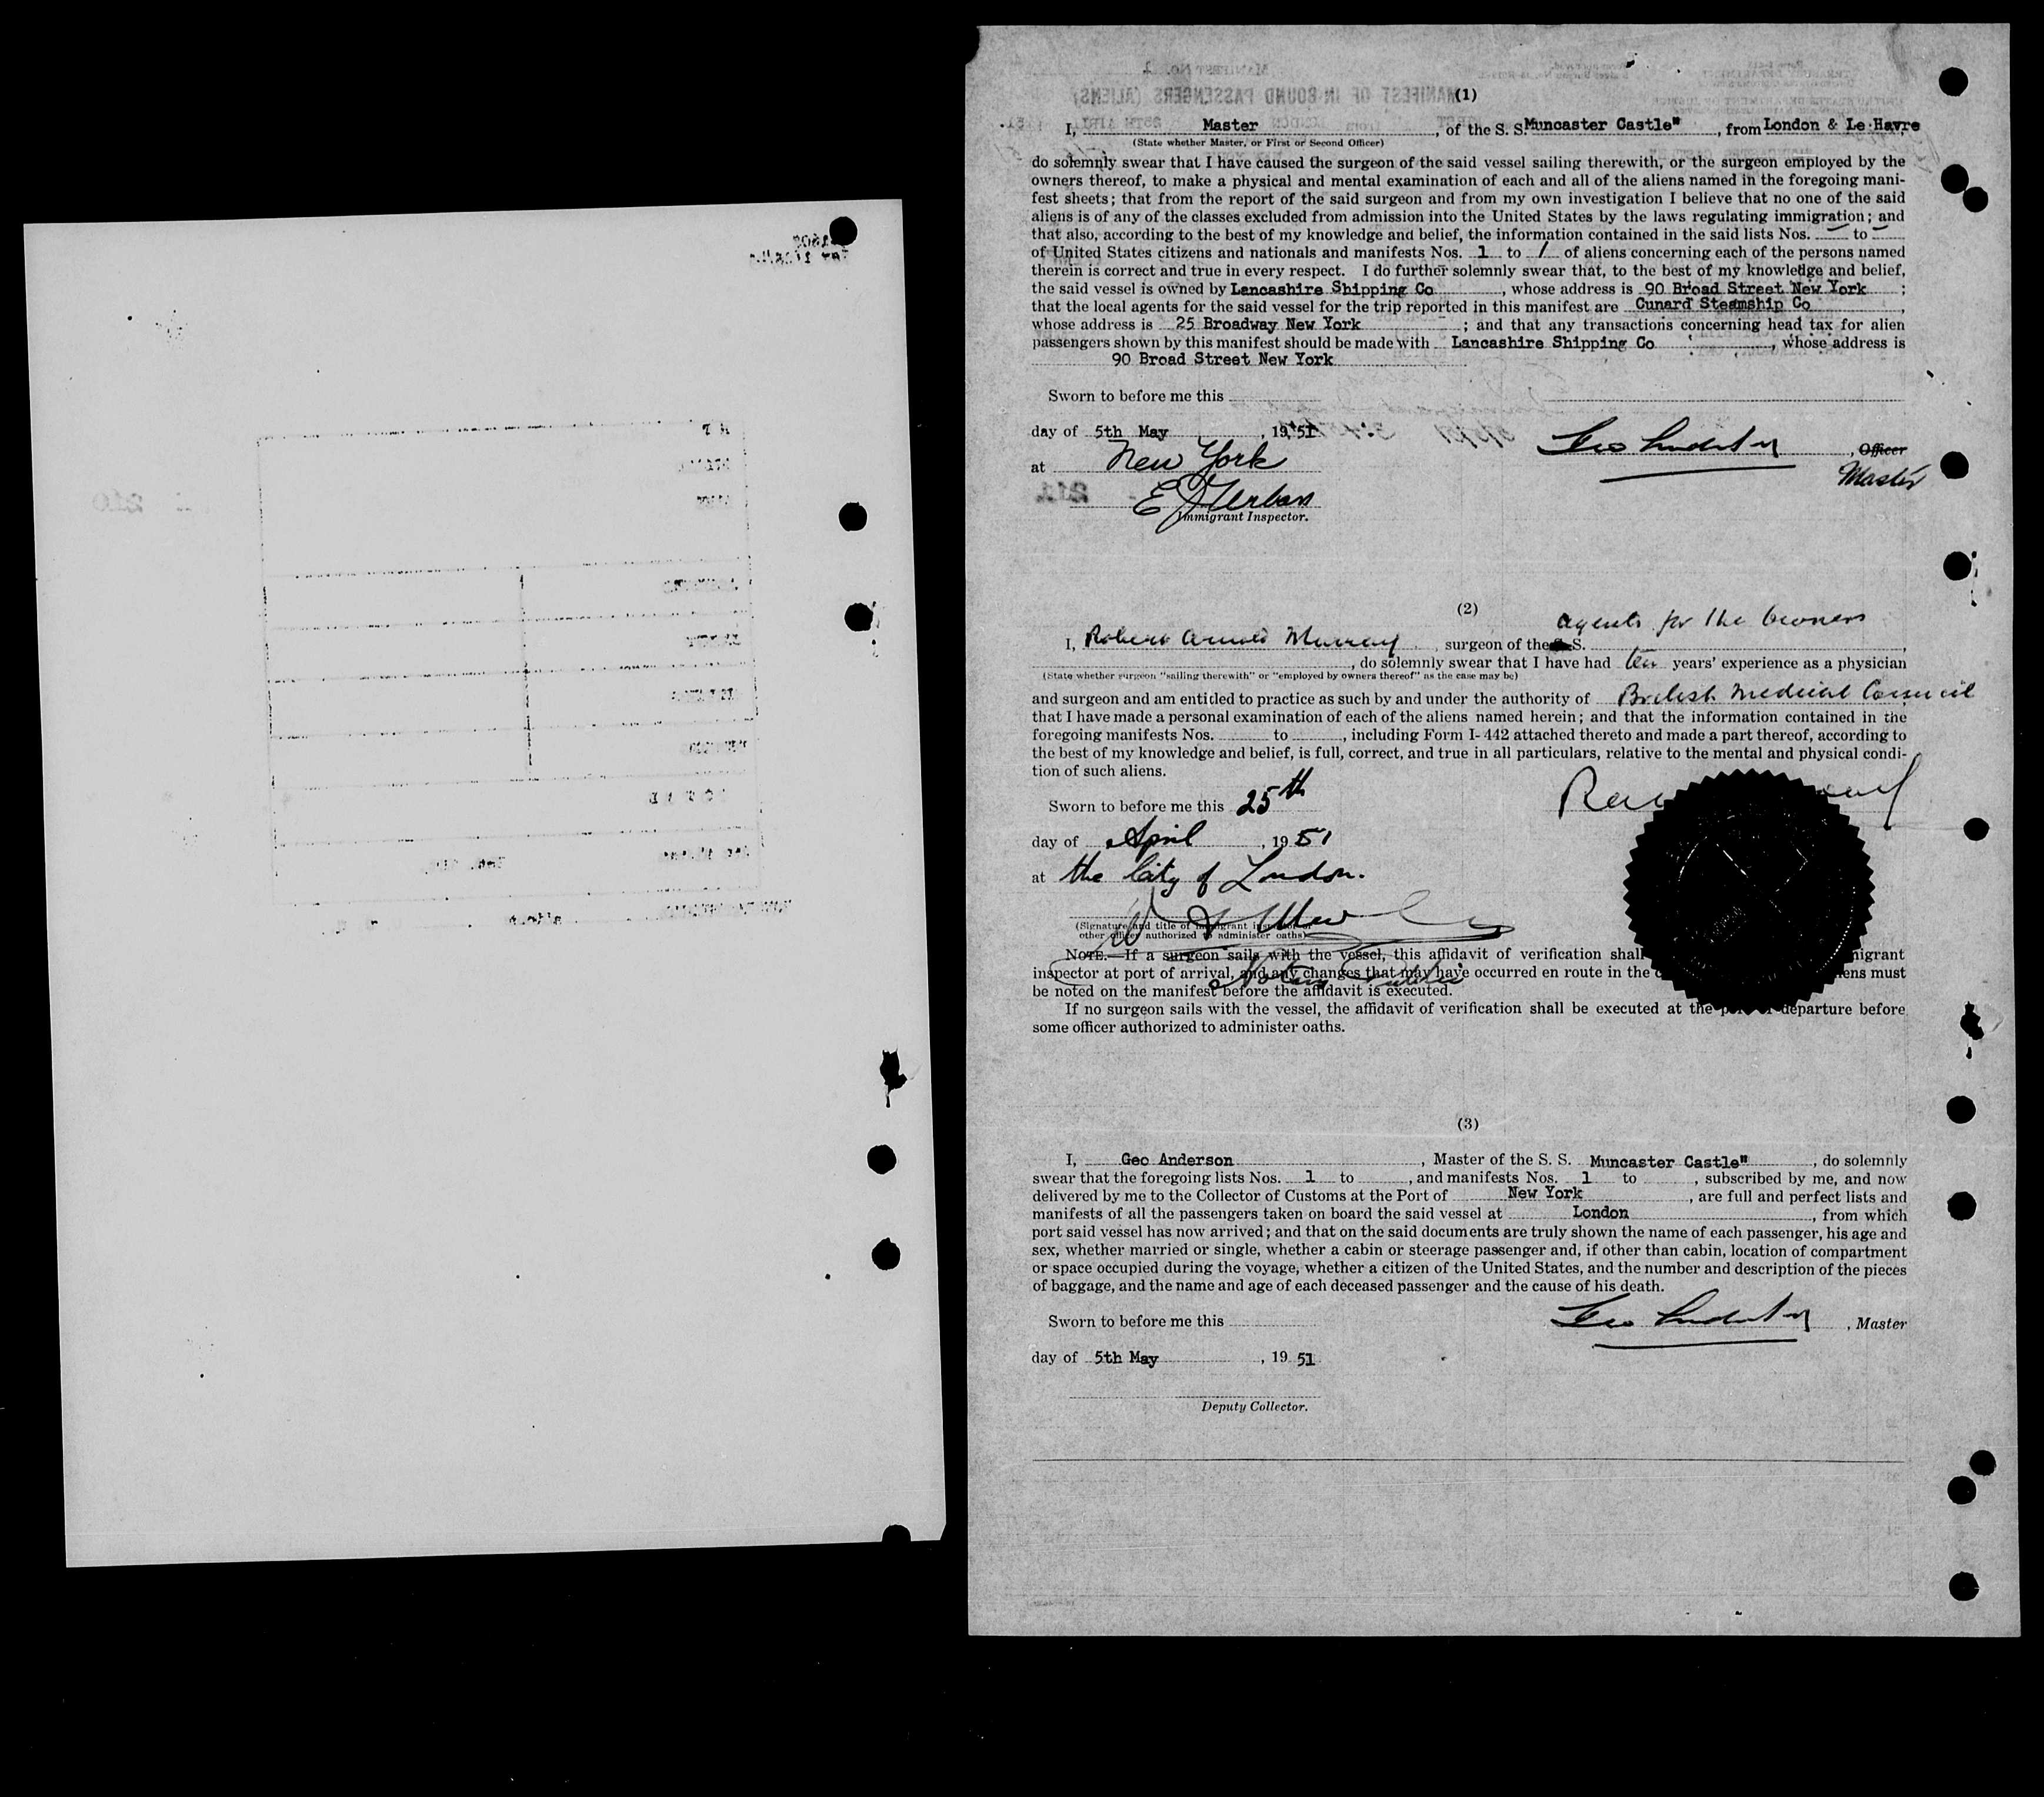 (1)
I, Master, of the S. S. Muncaster Castle", from London & Le Havre
(State whether Master, or First or Second Officer)
do solemnly swear that I have caused the surgeon of the said vessel sailing therewith, or the surgeon employed by the
owners thereof, to make a physical and mental examination of each and all of the aliens named in the foregoing mani-
fest sheets; that from the report of the said surgeon and from my own investigation I believe that no one of the said
aliens is of any of the classes excluded from admission into the United States by the laws regulating immigration; and
that also, according to the best of my knowledge and belief, the information contained in the said lists Nos. — to —
of United States citizens and nationals and manifests Nos. 1 to 1 of aliens concerning each of the persons named
therein is correct and true in every respect. I do further solemnly swear that, to the best of my knowledge and belief,
the said vessel is owned by Lancashire Shipping Co, whose address is 90 Broad Street New York;
that the local agents for the said vessel for the trip reported in this manifest are Cunard Steamship Co,
whose address is 25 Broadway New York; and that any transactions concerning head tax for alien
passengers shown by this manifest should be made with Lancashire Shipping Co, whose address is
90 Broad Street New York
Sworn to before me this
day of 5th May, 1951
Geo Anderson, Officer
at New York
Master
E J Urban
Immigrant Inspector.
(2)
agents for the Owners
I, Robert Arnold Murray surgeon of the S.,
, do solemnly swear that I have had ten years' experience as a physician
(State whether surgeon "sailing therewith" or "employed by owners thereof" as the case may be)
and surgeon and am entitled to practice as such by and under the authority of British Medical Council;
that I have made a personal examination of each of the aliens named herein; and that the information contained in the
foregoing manifests Nos. to , including Form I-442 attached thereto and made a part thereof, according to
the best of my knowledge and belief, is full, correct, and true in all particulars, relative to the mental and physical condi-
tion of such aliens.
Sworn to before me this 25th
day of April, 1951
at the City of London.
(Signature and title of immigrant inspector or
other officer authorized to administer oaths)
Notary Public
NOTE.—If a surgeon sails with the vessel, this affidavit of verification shall migrant
inspector at port of arrival, and any changes that may have occurred en route in the liens must
be noted on the manifest before the affidavit is executed.
If no surgeon sails with the vessel, the affidavit of verification shall be executed at the port of departure before
some officer authorized to administer oaths.
(3)
I, Geo Anderson, Master of the S. S. Muncaster Castle", do solemnly
swear that the foregoing lists Nos. 1 to , and manifests Nos. 1 to , subscribed by me, and now
delivered by me to the Collector of Customs at the Port of New York, are full and perfect lists and
manifests of all the passengers taken on board the said vessel at London, from which
port said vessel has now arrived; and that on the said documents are truly shown the name of each passenger, his age and
sex, whether married or single, whether a cabin or steerage passenger and, if other than cabin, location of compartment
or space occupied during the voyage, whether a citizen of the United States, and the number and description of the pieces
of baggage, and the name and age of each deceased passenger and the cause of his death.
Sworn to before me this
Geo Anderson, Master
day of 5th May, 1951
Deputy Collector.